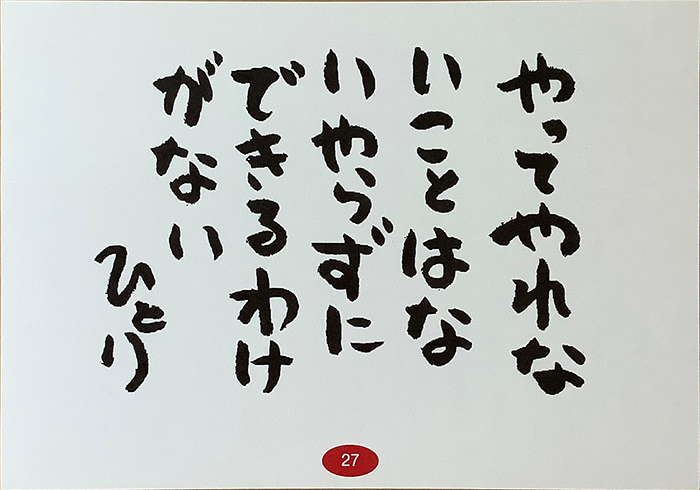 やってやれな
いことはな
いやらずに
できるわけ
がない
ひとり
27